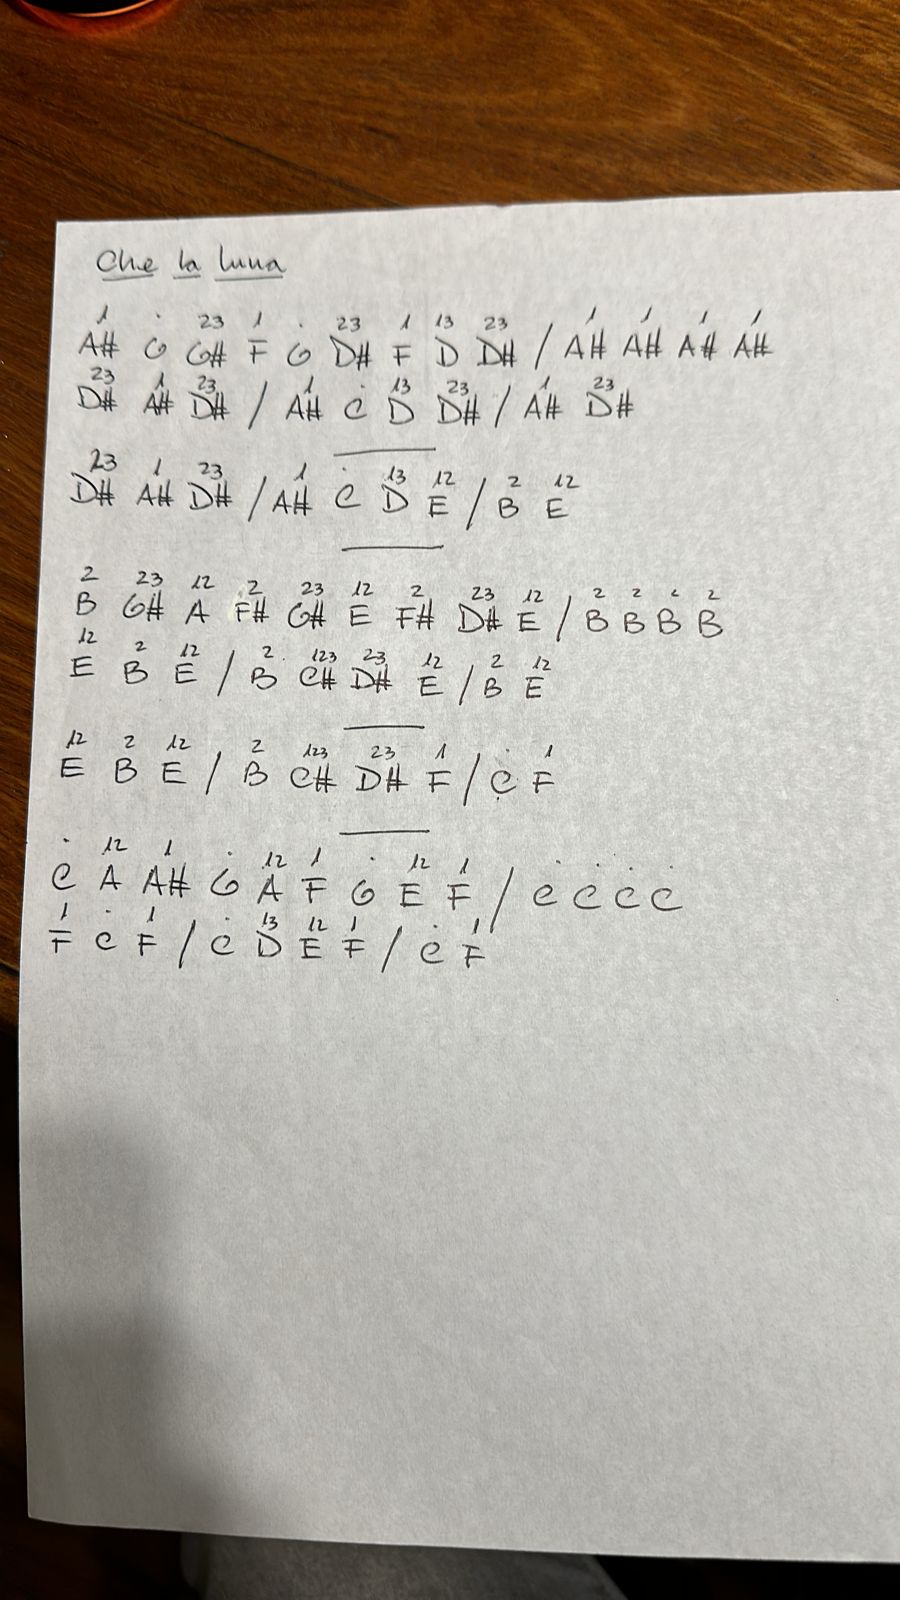 Che la luna
1 · 23 1 · 23 1 13 23 1 1 1 1
A# G G# F G D# F D D# / A# A# A# A#
23 1 23 1 · 13 23 1 23
D# A# D# / A# C D D# / A# D#
23 1 23 1 · 13 12 2 12
D# A# D# / A# C D E / B E
2 23 12 2 23 12 2 23 12 2 2 2 2
B G# A F# G# E F# D# E / B B B B
12 2 12 2 123 23 12 2 12
E B E / B C# D# E / B E
12 2 12 2 123 23 1 · 1
E B E / B C# D# F / C F
· 12 1 · 12 1 · 12 1 · · · ·
C A A# G A F G E F / C C C C
1 · 1 · 13 12 1 · 1
F C F / C D E F / C F